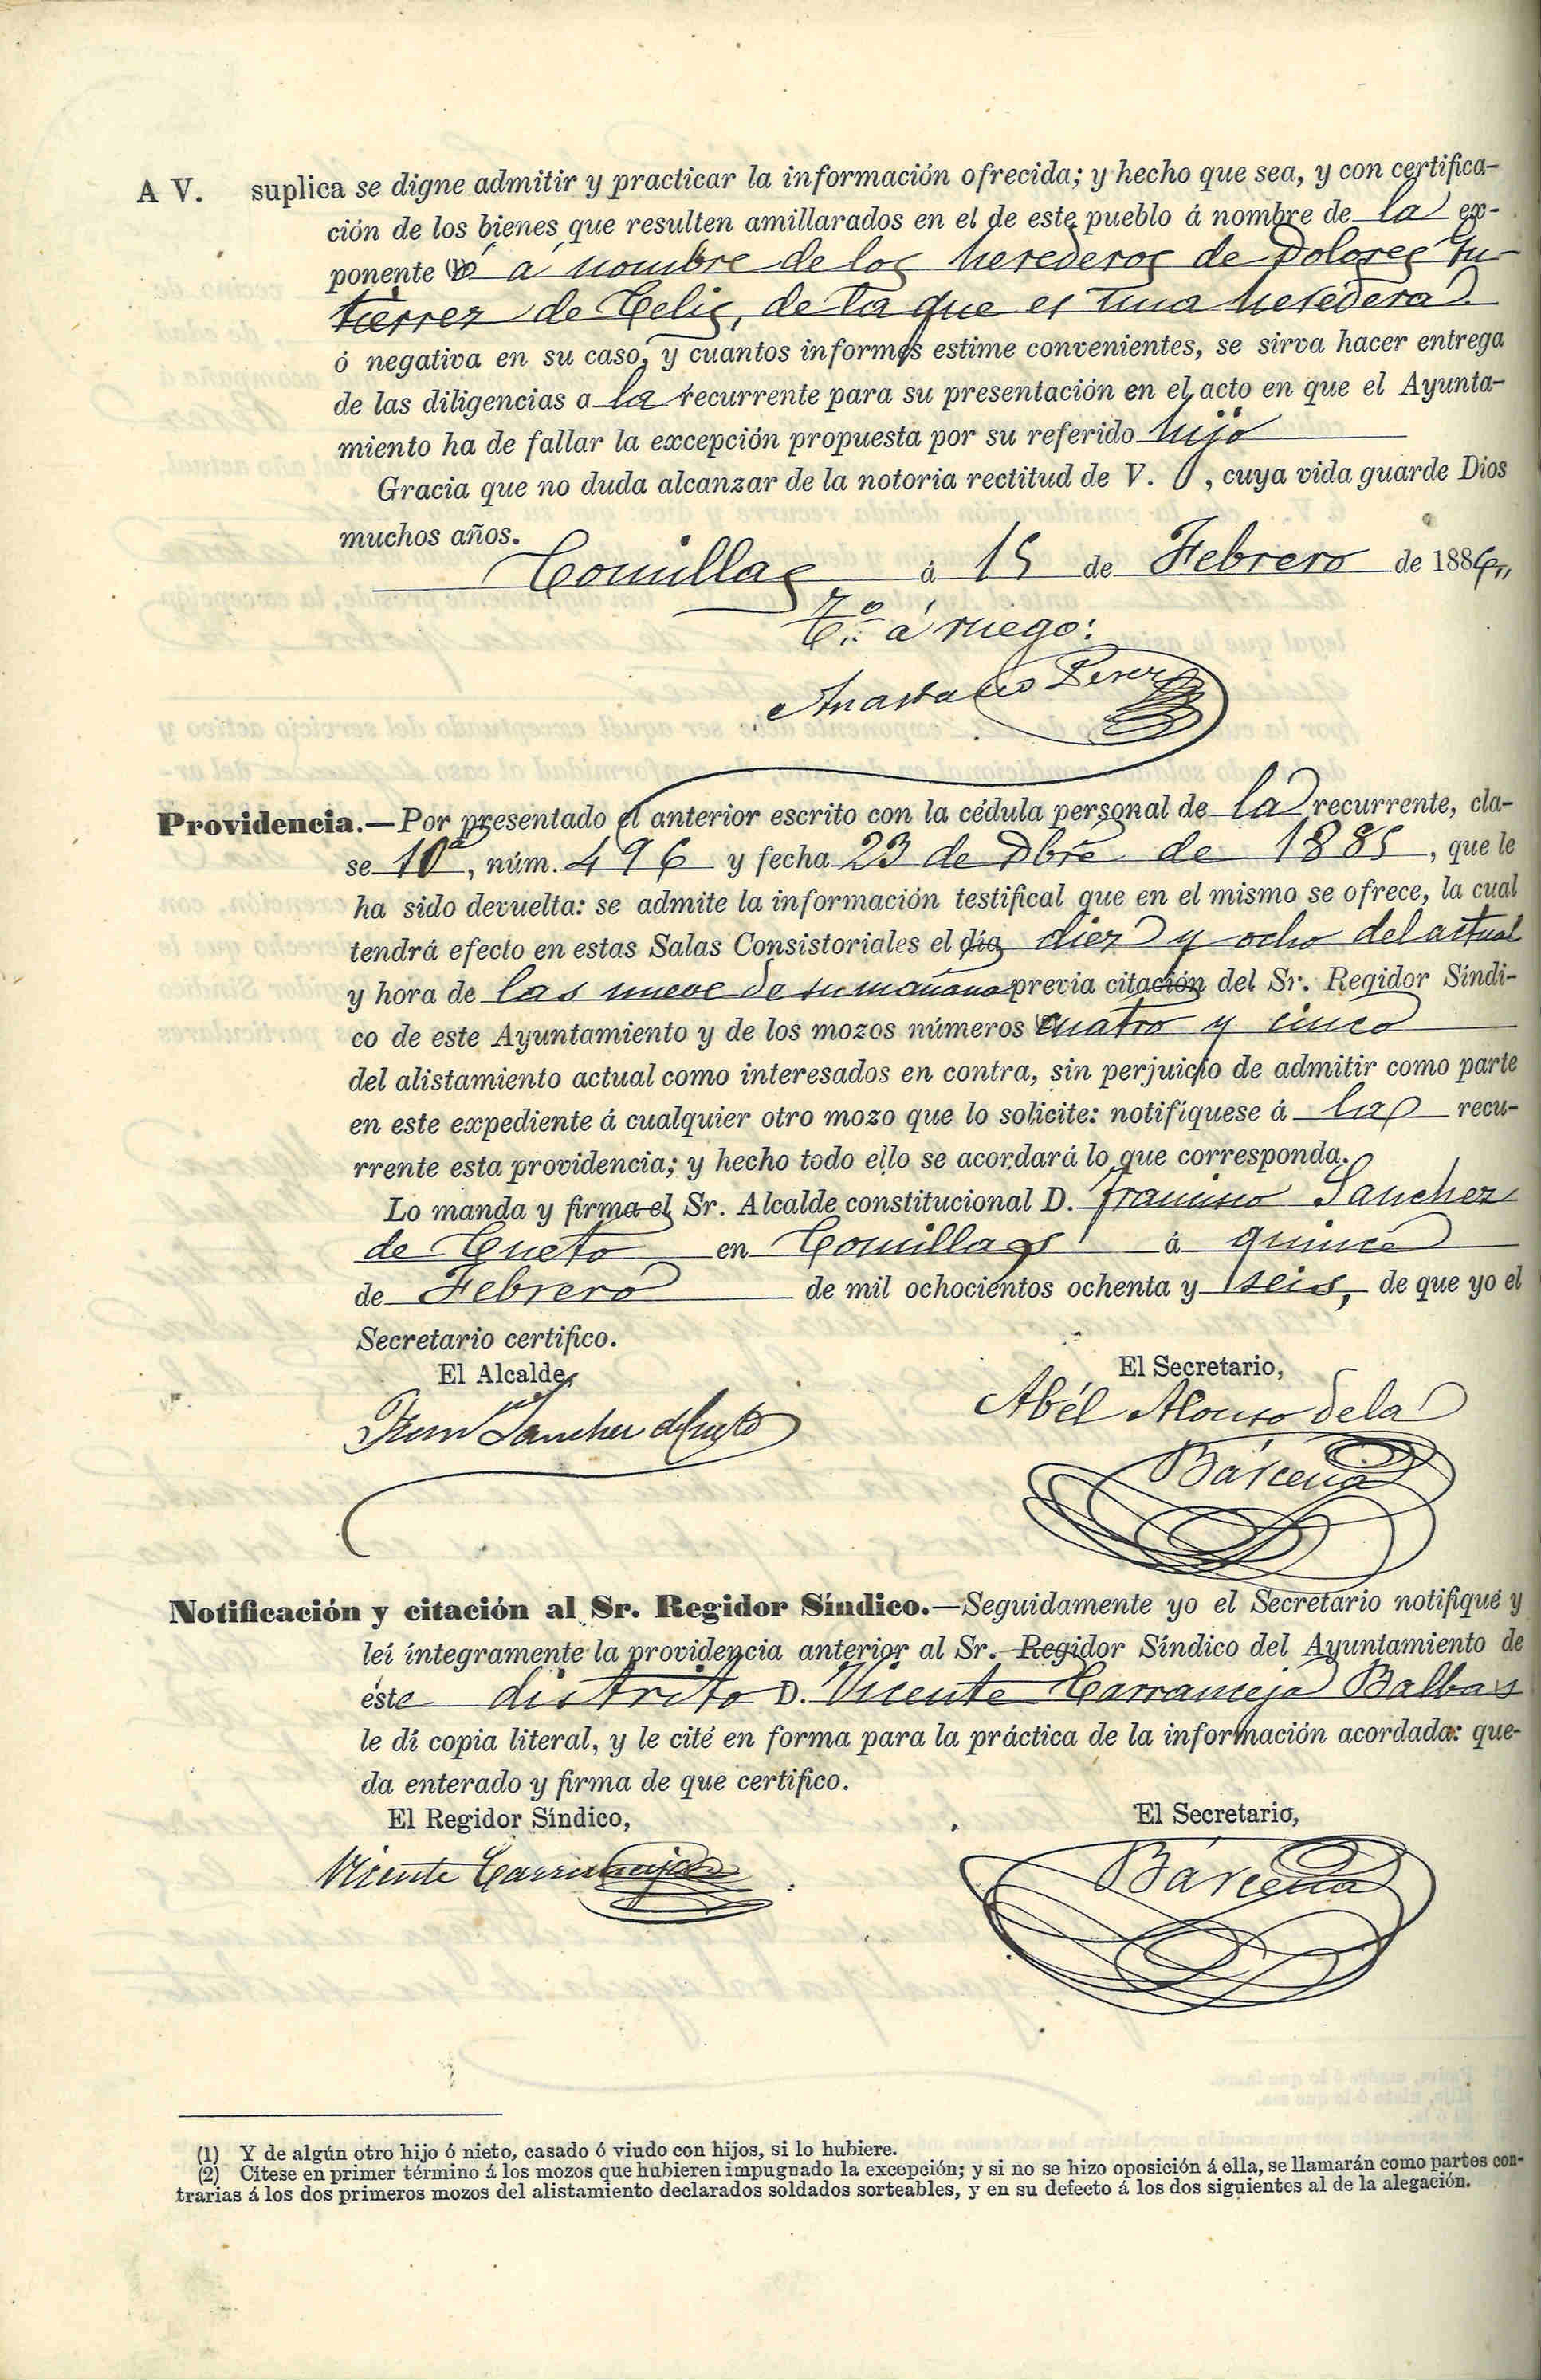 A V. suplica se digne admitir y practicar la información ofrecida; y hecho que sea, y con certifica-
ción de los bienes que resulten amillarados en el de este pueblo á nombre de la ex-
ponente ó á nombre de los herederos de Dolores Gu-
tierrez de Celis, de la que es una heredera
ó negativa en su caso, y cuantos informes estime convenientes, se sirva hacer entrega
de las diligencias a la recurrente para su presentación en el acto en que el Ayunta-
miento ha de fallar la excepción propuesta por su referido hijo
Gracia que no duda alcanzar de la notoria rectitud de V. , cuya vida guarde Dios
muchos años.
Comillas á 15 de Febrero de 1886
á ruego:
Anastasio Perez
Providencia.—Por presentado el anterior escrito con la cédula personal de la recurrente, cla-
se 10ª, núm. 496 y fecha 23 de Dbre de 1885, que le
ha sido devuelta: se admite la información testifical que en el mismo se ofrece, la cual
tendrá efecto en estas Salas Consistoriales el día diez y ocho del actual
y hora de las nueve de su mañana previa citación del Sr. Regidor Síndi-
co de este Ayuntamiento y de los mozos números cuatro y cinco
del alistamiento actual como interesados en contra, sin perjuicio de admitir como parte
en este expediente á cualquier otro mozo que lo solicite: notifíquese á la recu-
rrente esta providencia; y hecho todo ello se acordará lo que corresponda.
Lo manda y firma el Sr. Alcalde constitucional D. Francisco Sanchez
de Cueto en Comillas á quince
de Febrero de mil ochocientos ochenta y seis, de que yo el
Secretario certifico.
El Alcalde,
El Secretario,
Fran Sanchez de Cueto
Abél Alonso de la
Bárcena
Notificación y citación al Sr. Regidor Síndico.—Seguidamente yo el Secretario notifiqué y
leí íntegramente la providencia anterior al Sr. Regidor Síndico del Ayuntamiento de
éste distrito D. Vicente Carranceja Balbas
le dí copia literal, y le cité en forma para la práctica de la información acordada: que-
da enterado y firma de que certifico.
El Regidor Síndico,
El Secretario,
Vicente Carranceja
Bárcena
(1) Y de algún otro hijo ó nieto, casado ó viudo con hijos, si lo hubiere.
(2) Cítese en primer término á los mozos que hubieren impugnado la excepción; y si no se hizo oposición á ella, se llamarán como partes con-
trarias á los dos primeros mozos del alistamiento declarados soldados sorteables, y en su defecto á los dos siguientes al de la alegación.